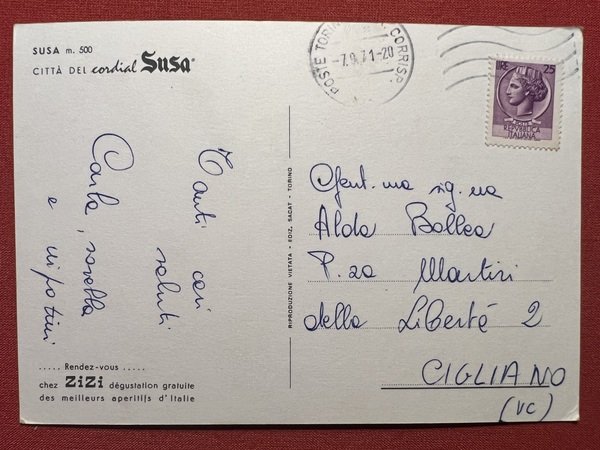 SUSA m. 500
CITTÀ DEL cordial Susa
Tanti cari
saluti
Carla, sorella
e nipotini
..... Rendez-vous .....
chez ZiZi dégustation gratuite
des meilleurs aperitifs d'Italie
RIPRODUZIONE VIETATA - EDIZ. SACAT - TORINO
POSTE TORINO CORRISP.
-7.9.71-20
25
POSTE
REPVBBLICA
ITALIANA
Gent.ma sig.na
Alda Bollea
P.za Martiri
della Libertà 2
CIGLIANO
(VC)